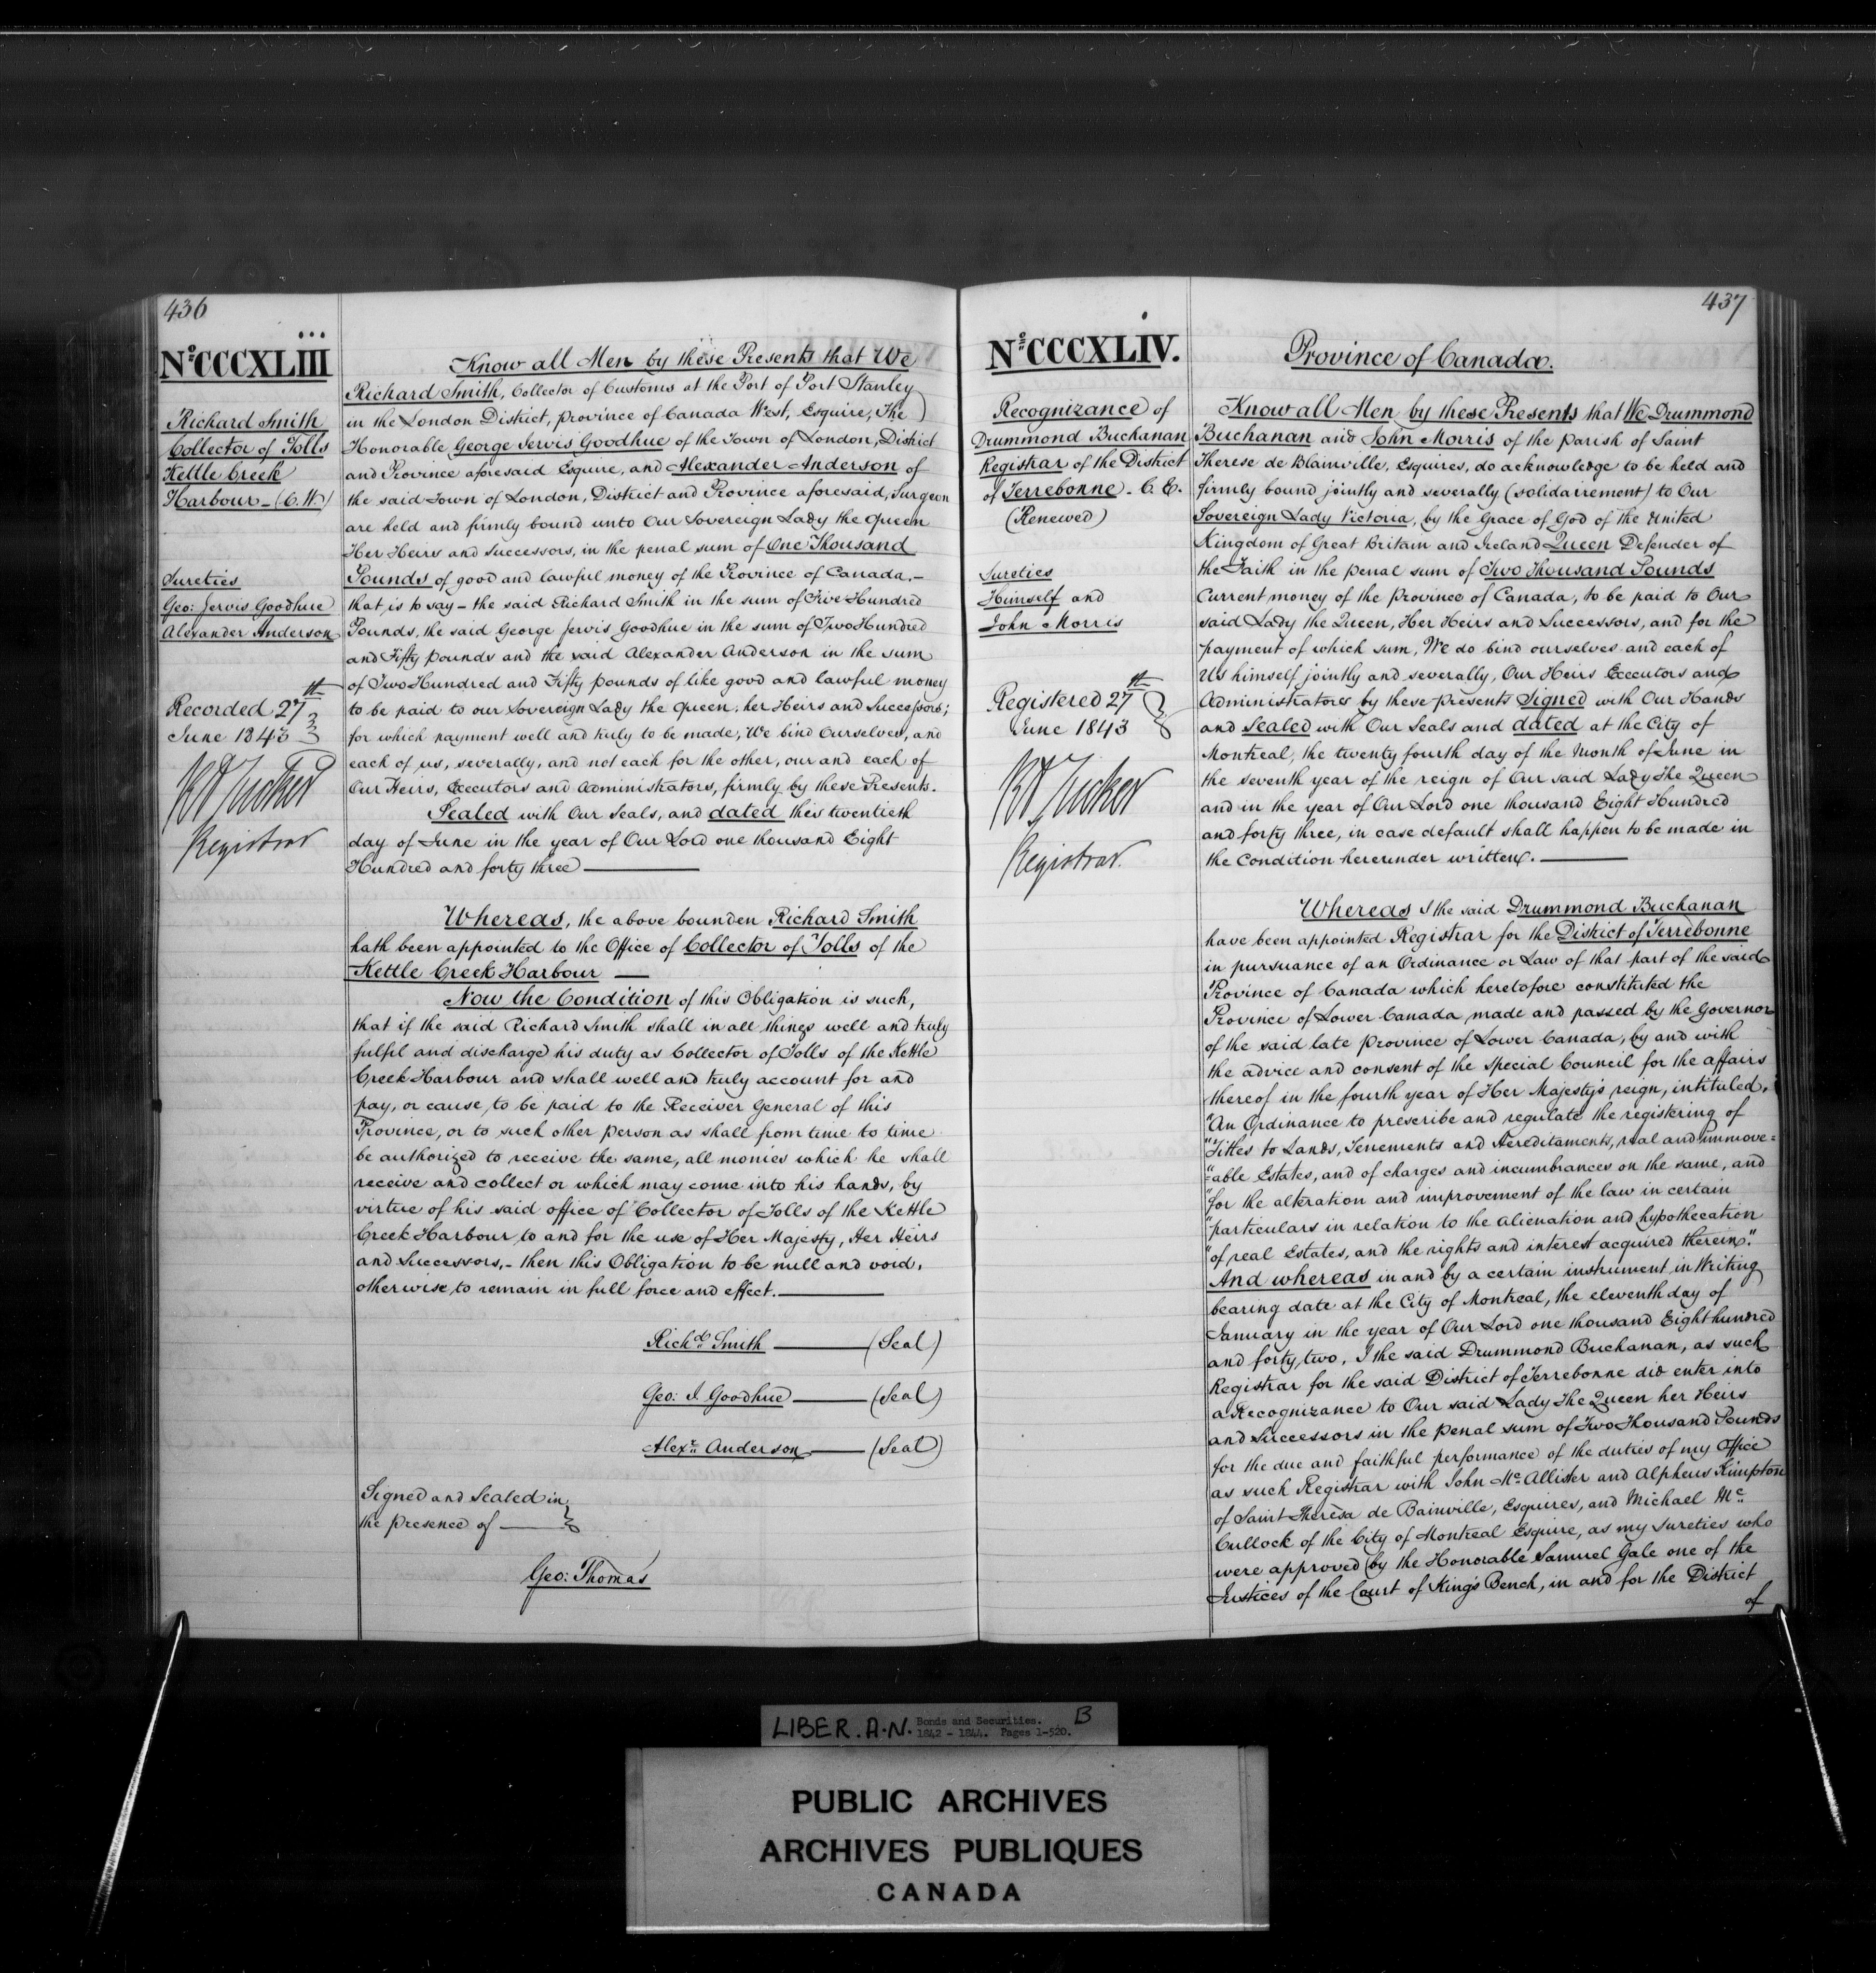 436
No. CCCXLIII
Richard Smith
Collector of Tolls
Kettle Creek
Harbour - (C.W)
Sureties
Geo: Jervis Goodhue
Alexander Anderson
Recorded 27th
June 1843
RA Tucker
Registrar
Know all Men by these Presents that We
Richard Smith, Collector of Customs at the Port of Port Stanley
in the London District, province of Canada West, Esquire, The
Honorable George Jervis Goodhue of the Town of London, District
and Province aforesaid Esquire, and Alexander Anderson of
the said Town of London, District and Province aforesaid, Surgeon
are held and firmly bound unto Our Sovereign Lady the Queen
Her Heirs and Successors, in the penal sum of One Thousand
Pounds of good and lawful money of the Province of Canada.-
that is to say - the said Richard Smith in the sum of Five Hundred
Pounds, the said George Jervis Goodhue in the sum of Two Hundred
and Fifty pounds and the said Alexander Anderson in the sum
of Two Hundred and Fifty pounds of like good and lawful money
to be paid to our Sovereign Lady the Queen, her Heirs and Successors;
for which payment well and truly to be made, We bind Ourselves, and
each of us, severally, and not each for the other, our and each of
Our Heirs, Executors and Administrators, firmly by these Presents.
Sealed with Our Seals, and dated this twentieth
day of June in the year of Our Lord one thousand Eight
Hundred and forty three
Whereas, the above bounden Richard Smith
hath been appointed to the Office of Collector of Tolls of the
Kettle Creek Harbour
Now the Condition of this Obligation is such,
that if the said Richard Smith shall in all things well and truly
fulfil and discharge his duty as Collector of Tolls of the Kettle
Creek Harbour and shall well and truly account for and
pay, or cause to be paid to the Receiver General of this
Province, or to such other person as shall from time to time
be authorized to receive the same, all monies which he shall
receive and collect or which may come into his hands, by
virtue of his said office of Collector of Tolls of the Kettle
Creek Harbour, to and for the use of Her Majesty, Her Heirs
and Successors,- then this Obligation to be null and void,
otherwise, to remain in full force and effect.
Richd Smith (Seal)
Geo: J. Goodhue (Seal)
Alexr Anderson (Seal)
Signed and Sealed in
the presence of
Geo: Thomas
437
No. CCCXLIV.
Recognizance of
Drummond Buchanan
Registrar of the District
of Terrebonne - C.E.
(Renewed)
Sureties
Himself and
John Morris
Registered 27th
June 1843
RA Tucker
Registrar.
Province of Canada.
Know all Men by these Presents that We Drummond
Buchanan and John Morris of the parish of Saint
Therese de Blainville, Esquires, do acknowledge to be held and
firmly bound jointly and severally (solidairement) to Our
Sovereign Lady Victoria, by the Grace of God of the United
Kingdom of Great Britain and Ireland Queen Defender of
the Faith in the penal sum of Two Thousand Pounds
Current money of the Province of Canada, to be paid to Our
said Lady the Queen, Her Heirs and Successors, and for the
payment of which sum, We do bind ourselves and each of
Us himself jointly and severally, Our Heirs Executors and
Administrators by these presents Signed with Our Hands
and Sealed with Our Seals and dated at the City of
Montreal, the twenty fourth day of the Month of June in
the seventh year of the reign of Our said Lady The Queen
and in the year of Our Lord one thousand Eight Hundred
and forty three, in case default shall happen to be made in
the Condition hereunder written.
Whereas I the said Drummond Buchanan
have been appointed Registrar for the District of Terrebonne
in pursuance of an Ordinance or Law of that part of the said
Province of Canada which heretofore constituted the
Province of Lower Canada made and passed by the Governor
of the said late Province of Lower Canada, by and with
the advice and consent of the Special Council for the affairs
thereof in the fourth year of Her Majesty's reign, intituled,
"An Ordinance to prescribe and regulate the registering of
"Titles to Lands, Tenements and Hereditaments, real and immove=
"=able Estates, and of charges and incumbrances on the same, and
"for the alteration and improvement of the law in certain
"particulars in relation to the alienation and hypothecation
"of real Estates, and the rights and interest acquired therein."
And whereas in and by a certain instrument in Writing
bearing date at the City of Montreal, the eleventh day of
January in the year of Our Lord one thousand Eight hundred
and forty two, I the said Drummond Buchanan, as such
Registrar for the said District of Terrebonne did enter into
a Recognizance to Our said Lady The Queen her Heirs
and Successors in the penal sum of Two Thousand Pounds
for the due and faithful performance of the duties of my Office
as such Registrar with John Mc Allister and Alpheus Kimpton
of Saint Theresa de Bainville, Esquires, and Michael Mc
Cullock of the City of Montreal Esquire, as my Sureties who
were approved by the Honorable Samuel Gale one of the
Justices of the Court of King's Bench, in and for the District
of
LIBER. A.N. Bonds and Securities. B
1842 - 1844. Pages 1-520.
PUBLIC ARCHIVES
ARCHIVES PUBLIQUES
CANADA